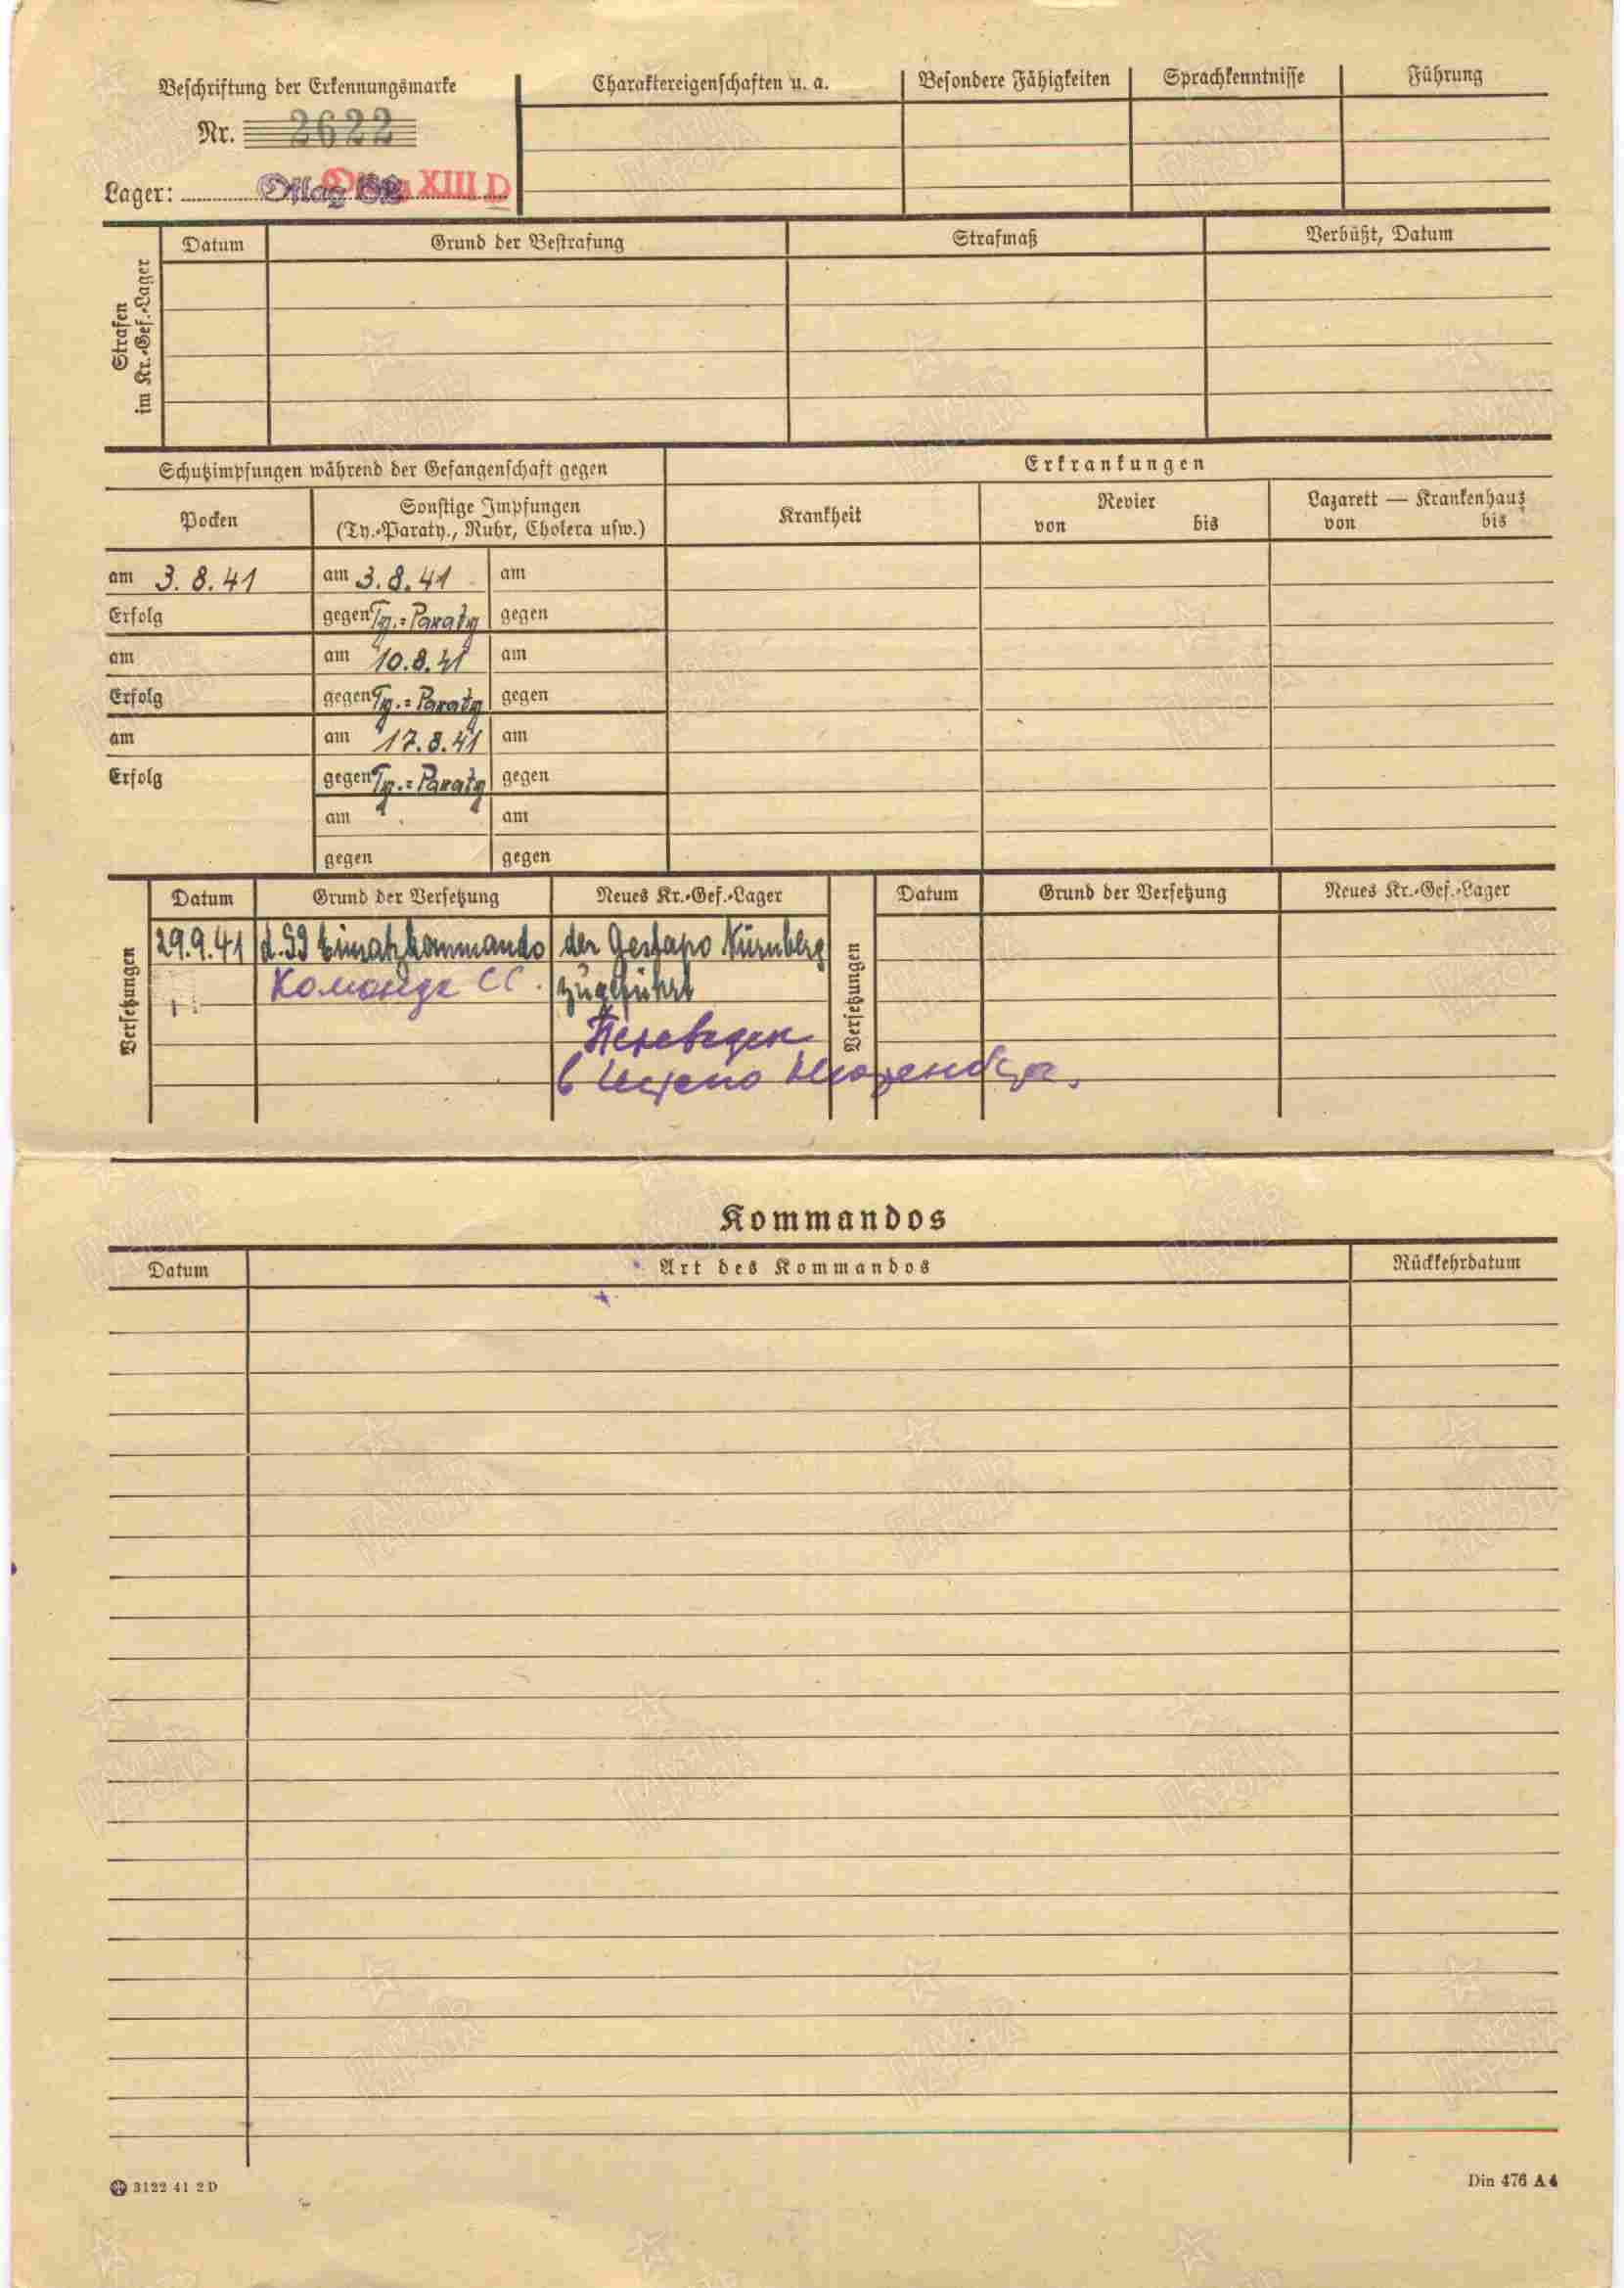 Beschriftung der Erkennungsmarke
Nr. 2622
Lager: Oflag 62 Oflag XIII D
Charaktereigenschaften u. a.
Besondere Fähigkeiten
Sprachkenntnisse
Führung
Strafen
im Kr.-Gef.-Lager
Datum
Grund der Bestrafung
Strafmaß
Verbüßt, Datum
Schutzimpfungen während der Gefangenschaft gegen
Erkrankungen
Pocken
Sonstige Impfungen
(Ty.-Paraty., Ruhr, Cholera usw.)
Krankheit
Revier
von bis
Lazarett — Krankenhaus
von bis
am 3. 8. 41 am 3. 8. 41 am
Erfolg gegen Ty.=Paraty gegen
am am 10.8.41 am
Erfolg gegen Ty.=Paraty gegen
am am 17.8.41 am
Erfolg gegen Ty.=Paraty gegen
am am
gegen gegen
Versetzungen
Datum Grund der Versetzung Neues Kr.-Gef.-Lager
29.9.41 d. SS Einsatzkommando der Gestapo Nürnberg
Команде СС. zugeführt
Переведен
в Гестапо Нюренберг.
Versetzungen
Datum Grund der Versetzung Neues Kr.-Gef.-Lager
Kommandos
Datum Art des Kommandos Rückkehrdatum
3122 41 2 D
Din 476 A 4
ПАМЯТЬ НАРОДА